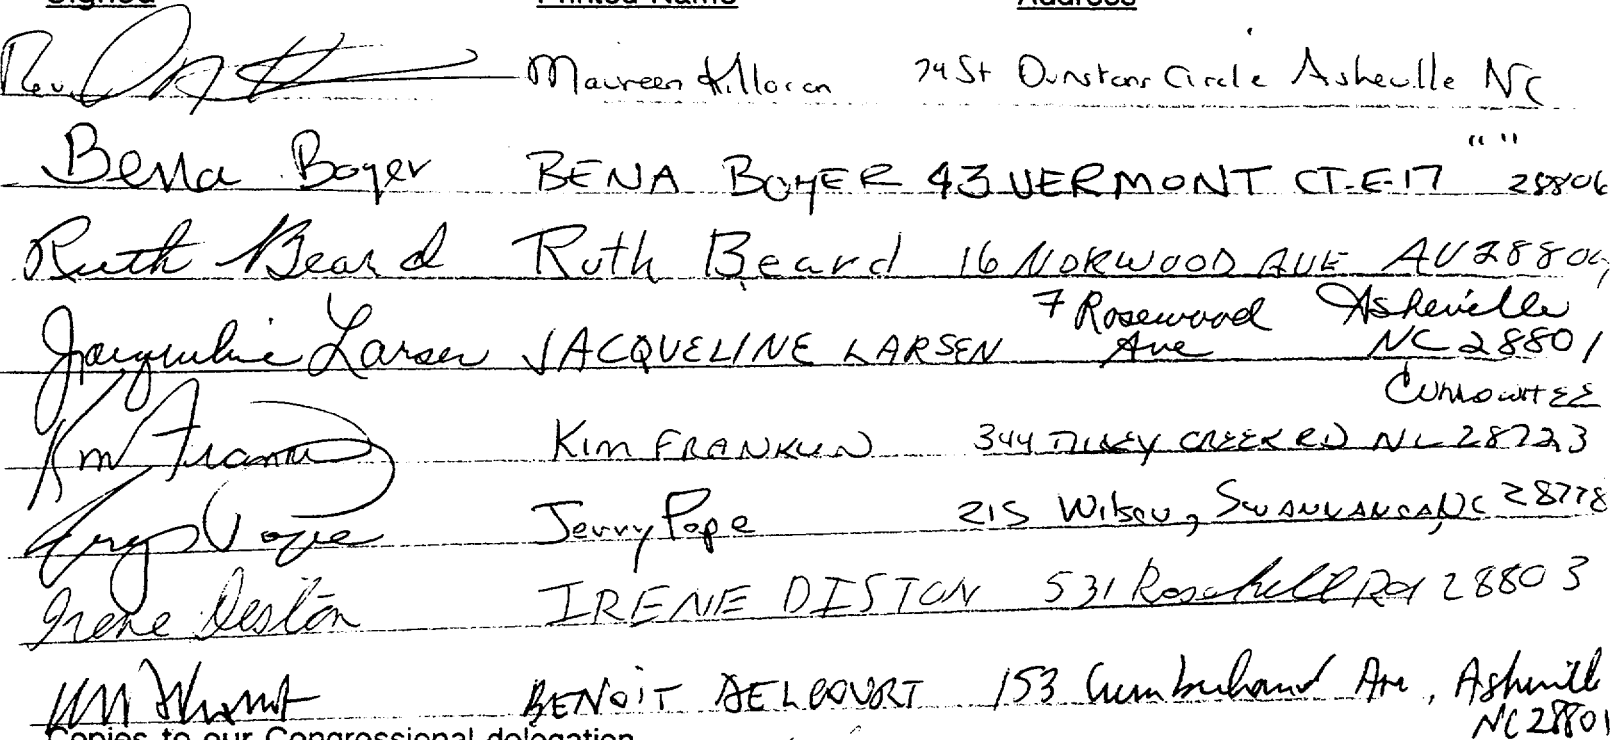 Signed Printed Name Address
Rev. Maureen Killoran 74 St Dunstans Circle Asheville NC
Bena Boyer BENA BOYER 43 VERMONT CT-E-17 " " 28806
Ruth Beard Ruth Beard 16 NORWOOD AVE AV 28804
Jacqueline Larsen JACQUELINE LARSEN 7 Rosewood Ave Asheville NC 28801
Kim Franklin KIM FRANKLIN 344 TILLEY CREEK RD CULLOWHEE NC 28723
Jerry Pope Jerry Pope 215 Wilson, SWANNANOA, NC 28778
Irene Diston IRENE DISTON 531 Rd 28803
BENOIT DELCOURT 153 Cumberland Ave, Asheville NC 28801
Copies to our Congressional delegation